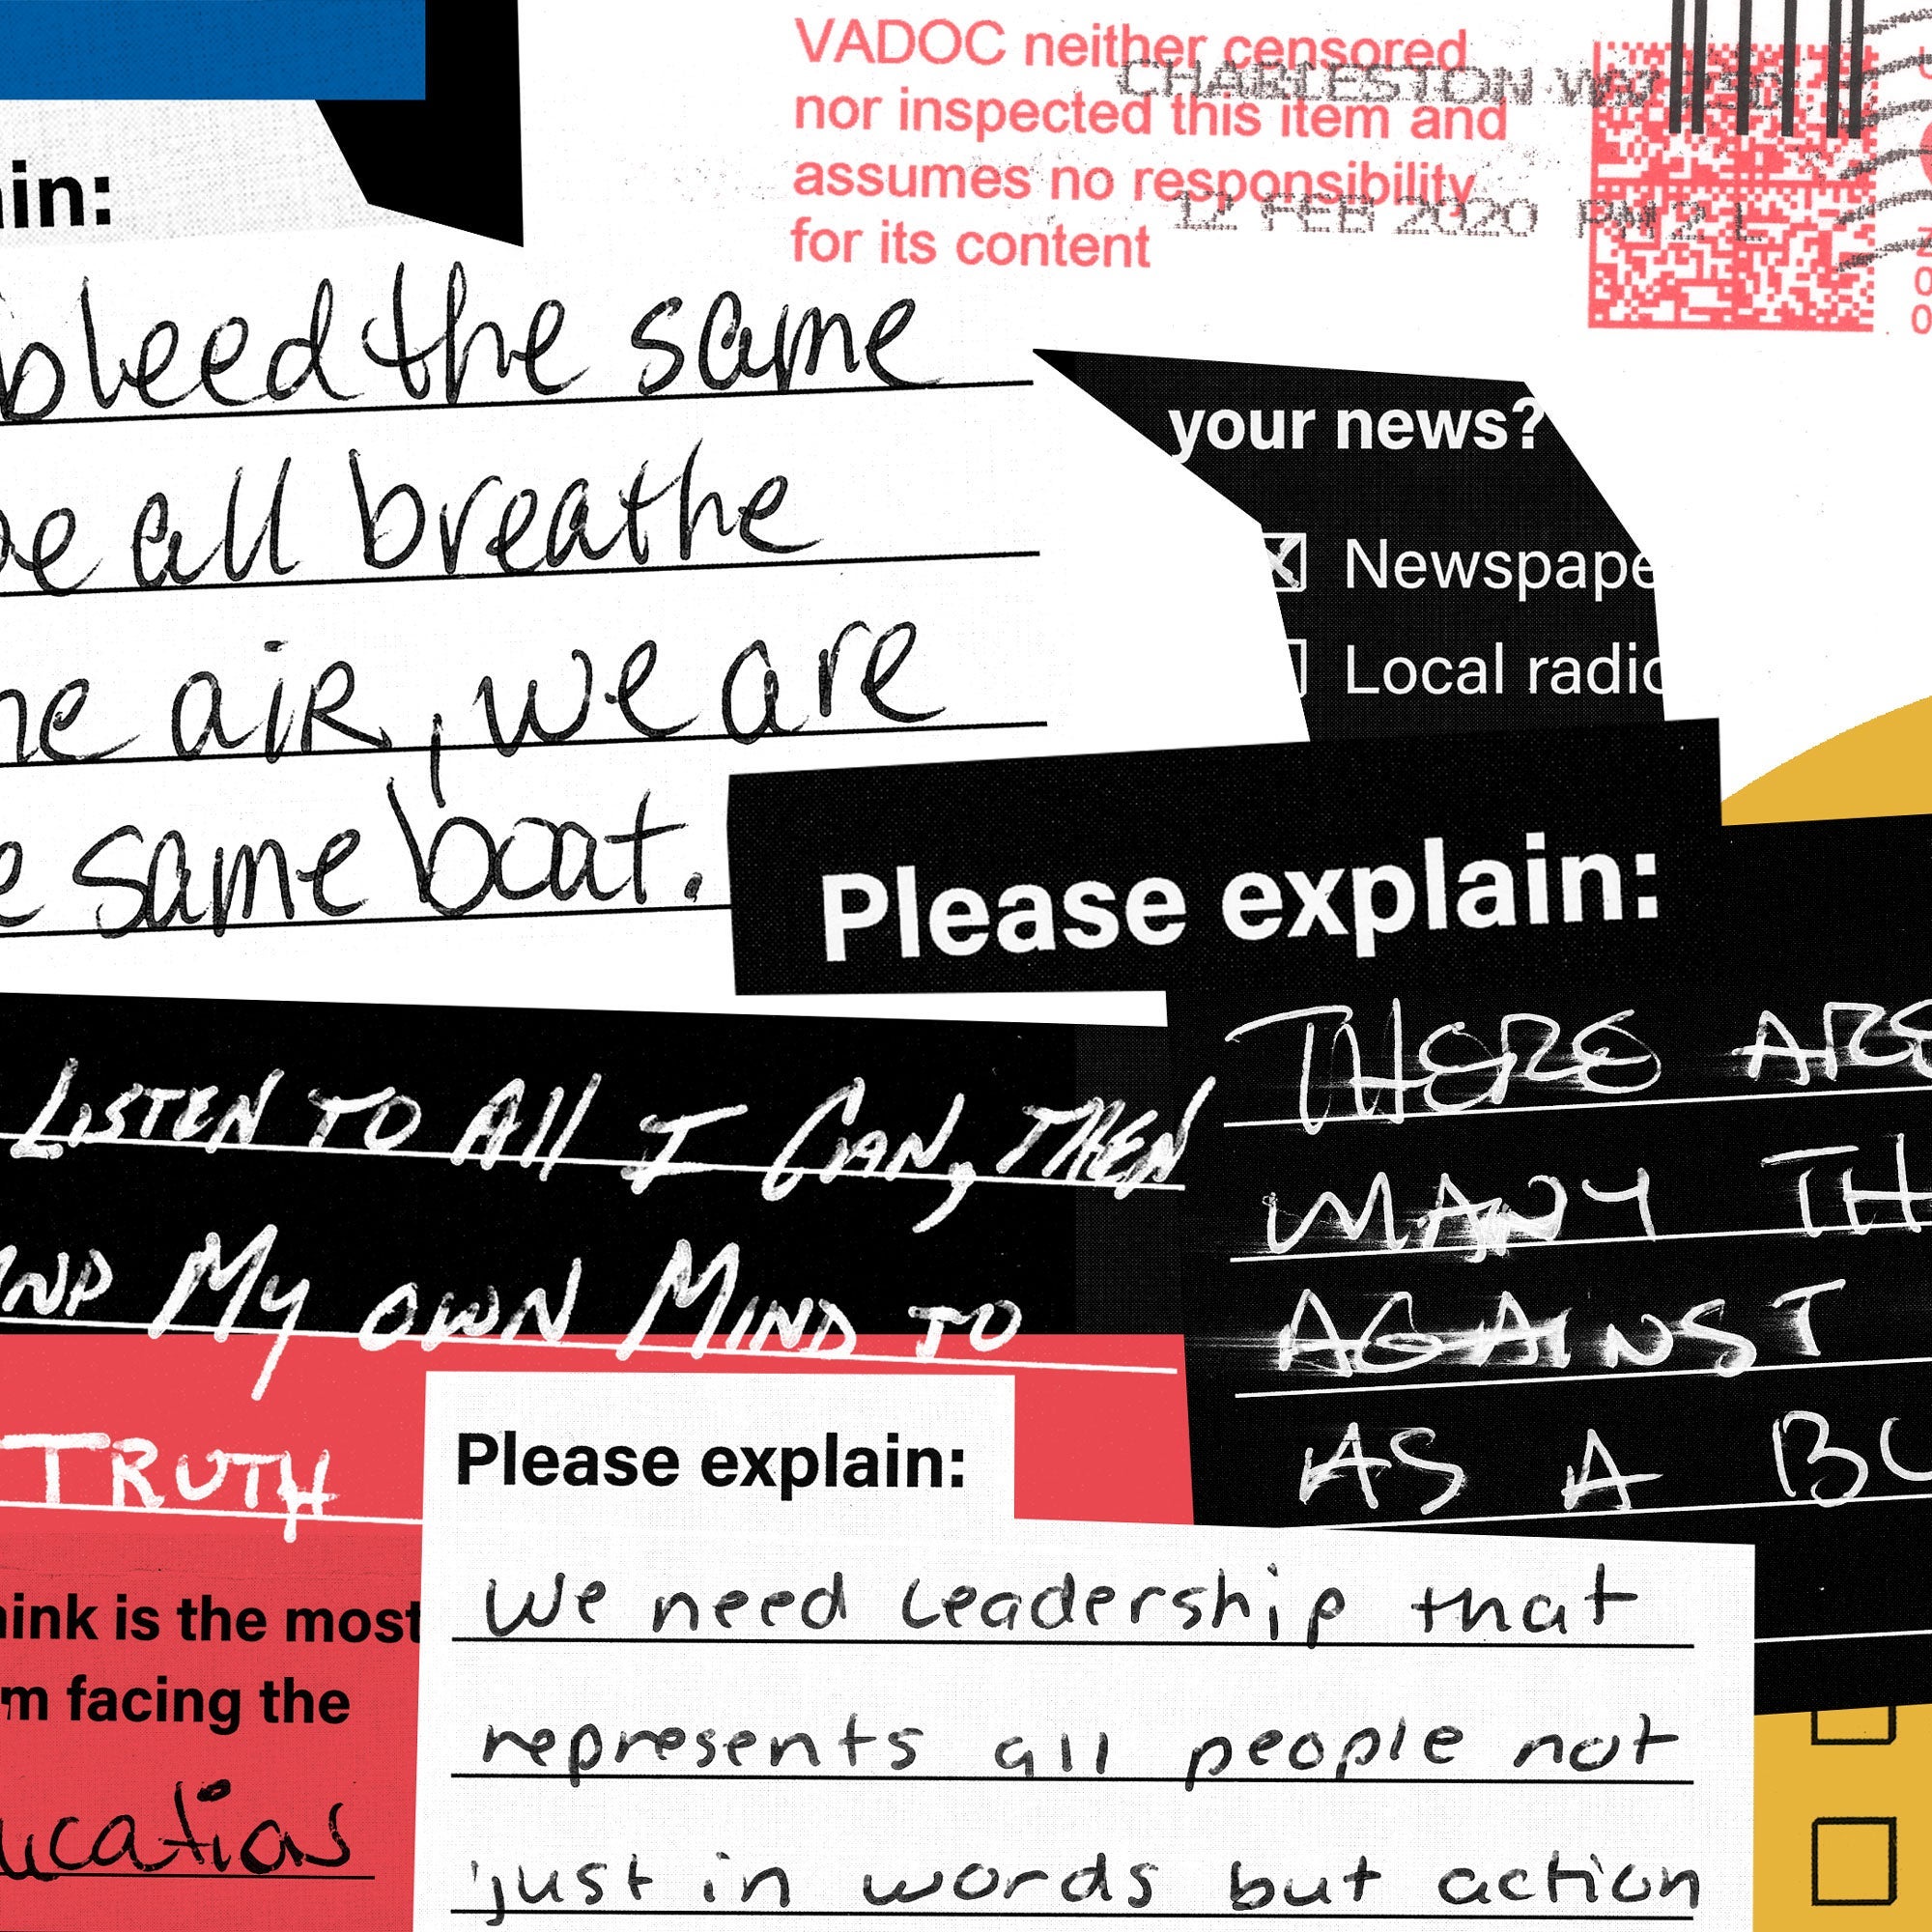 VADOC neither censored
nor inspected this item and
assumes no responsibility
for its content
CHARLESTON WV
12 FEB 2020 PM 2 L
ain:
bleed the same
we all breathe
air, we are
same boat.
your news?
Newspape
Local radio
Please explain:
THERE ARE
MANY TH
AGAINST
AS A BU
LISTEN TO All I CAN, THEN
My OWN MIND TO
TRUTH
hink is the most
m facing the
ucation
Please explain:
We need leadership that
represents all people not
just in words but action